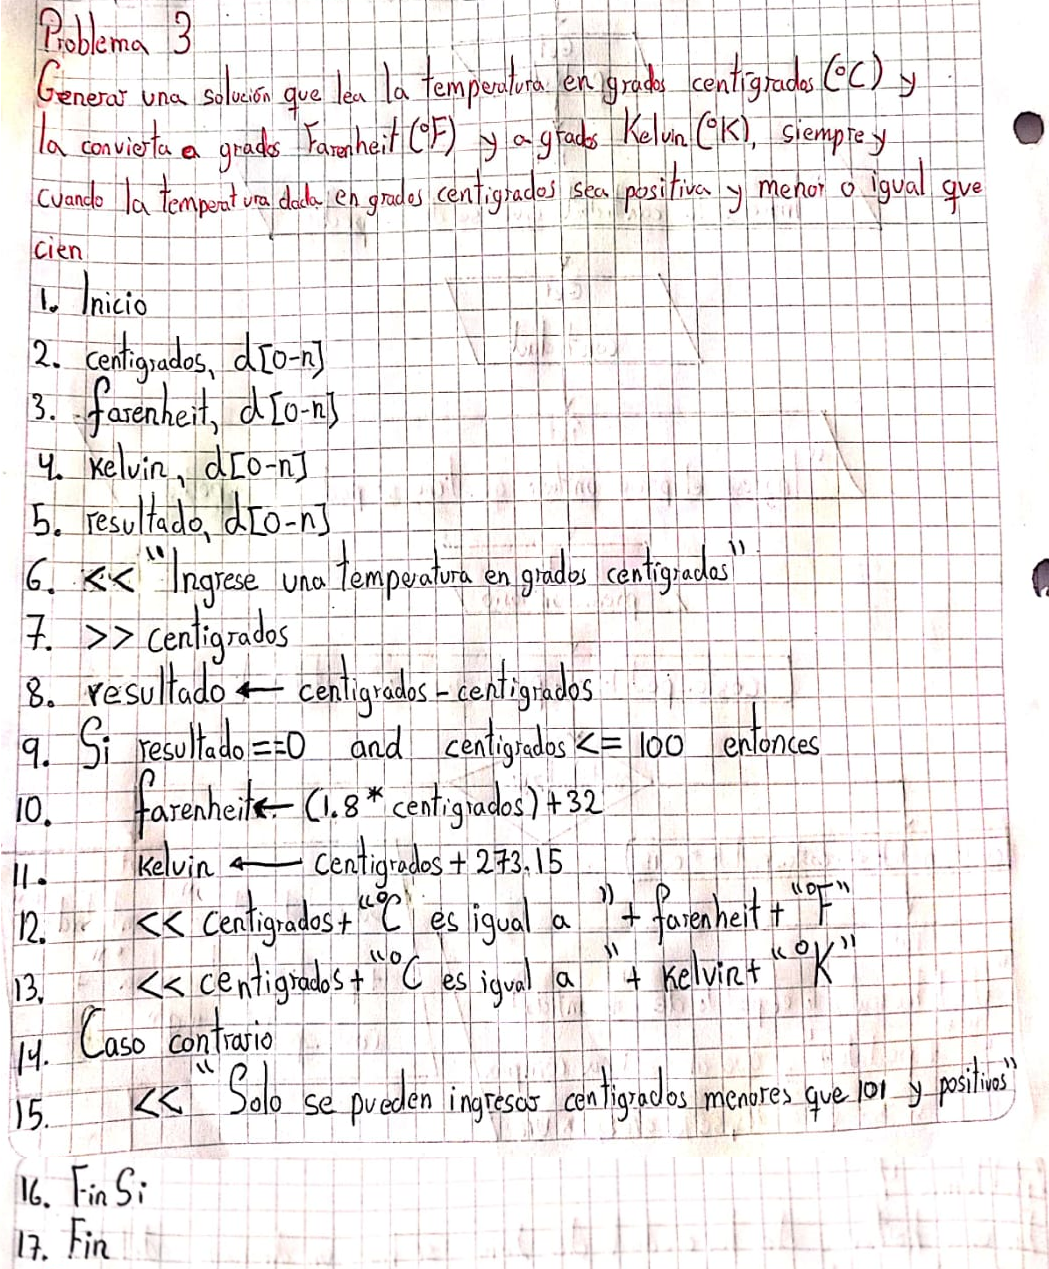 Problema 3
Generar una solución que lea la temperatura en grados centigrados (°C) y
la convierta a grados Farenheit (°F) y a grados Kelvin (°K), siempre y
cuando la temperatura dada en grados centigrados sea positiva y menor o igual que
cien
1. Inicio
2. centigrados, d[0-n]
3. farenheit, d[0-n]
4. Kelvin, d[0-n]
5. resultado, d[0-n]
6. << "Ingrese una temperatura en grados centigrados"
7. >> centigrados
8. resultado ← centigrados - centigrados
9. Si resultado==0 and centigrados <= 100 entonces
10. farenheit ← (1.8 * centigrados) + 32
11. Kelvin ← centigrados + 273.15
12. << centigrados + "°C es igual a " + farenheit + "°F"
13. << centigrados + "°C es igual a " + Kelvin + "°K"
14. Caso contrario
15. << "Solo se pueden ingresar centigrados menores que 101 y positivos"
16. Fin Si
17. Fin